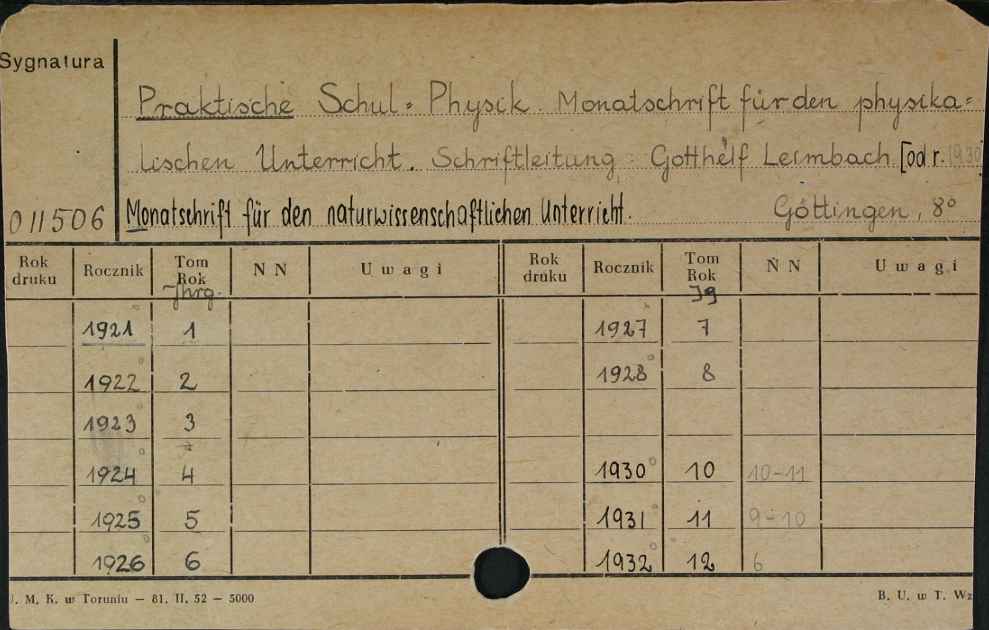 Sygnatura
Praktische Schul= Physik. Monatschrift für den physika=
lischen Unterricht. Schriftleitung: Gotthelf Leimbach. [od r. 1930
011506 Monatschrift für den naturwissenschaftlichen Unterricht. Göttingen, 8°
Rok druku Rocznik Tom Rok NN Uwagi Rok druku Rocznik Tom Rok NN Uwagi
Jhrg. Jg
1921 1 1927 7
1922 2 1928 8
1923 3
1924 4 1930 10 10-11
1925 5 1931 11 9-10
1926 6 1932 12 6
. M. K. w Toruniu — 81. II. 52 — 5000 B. U. w T. Wz